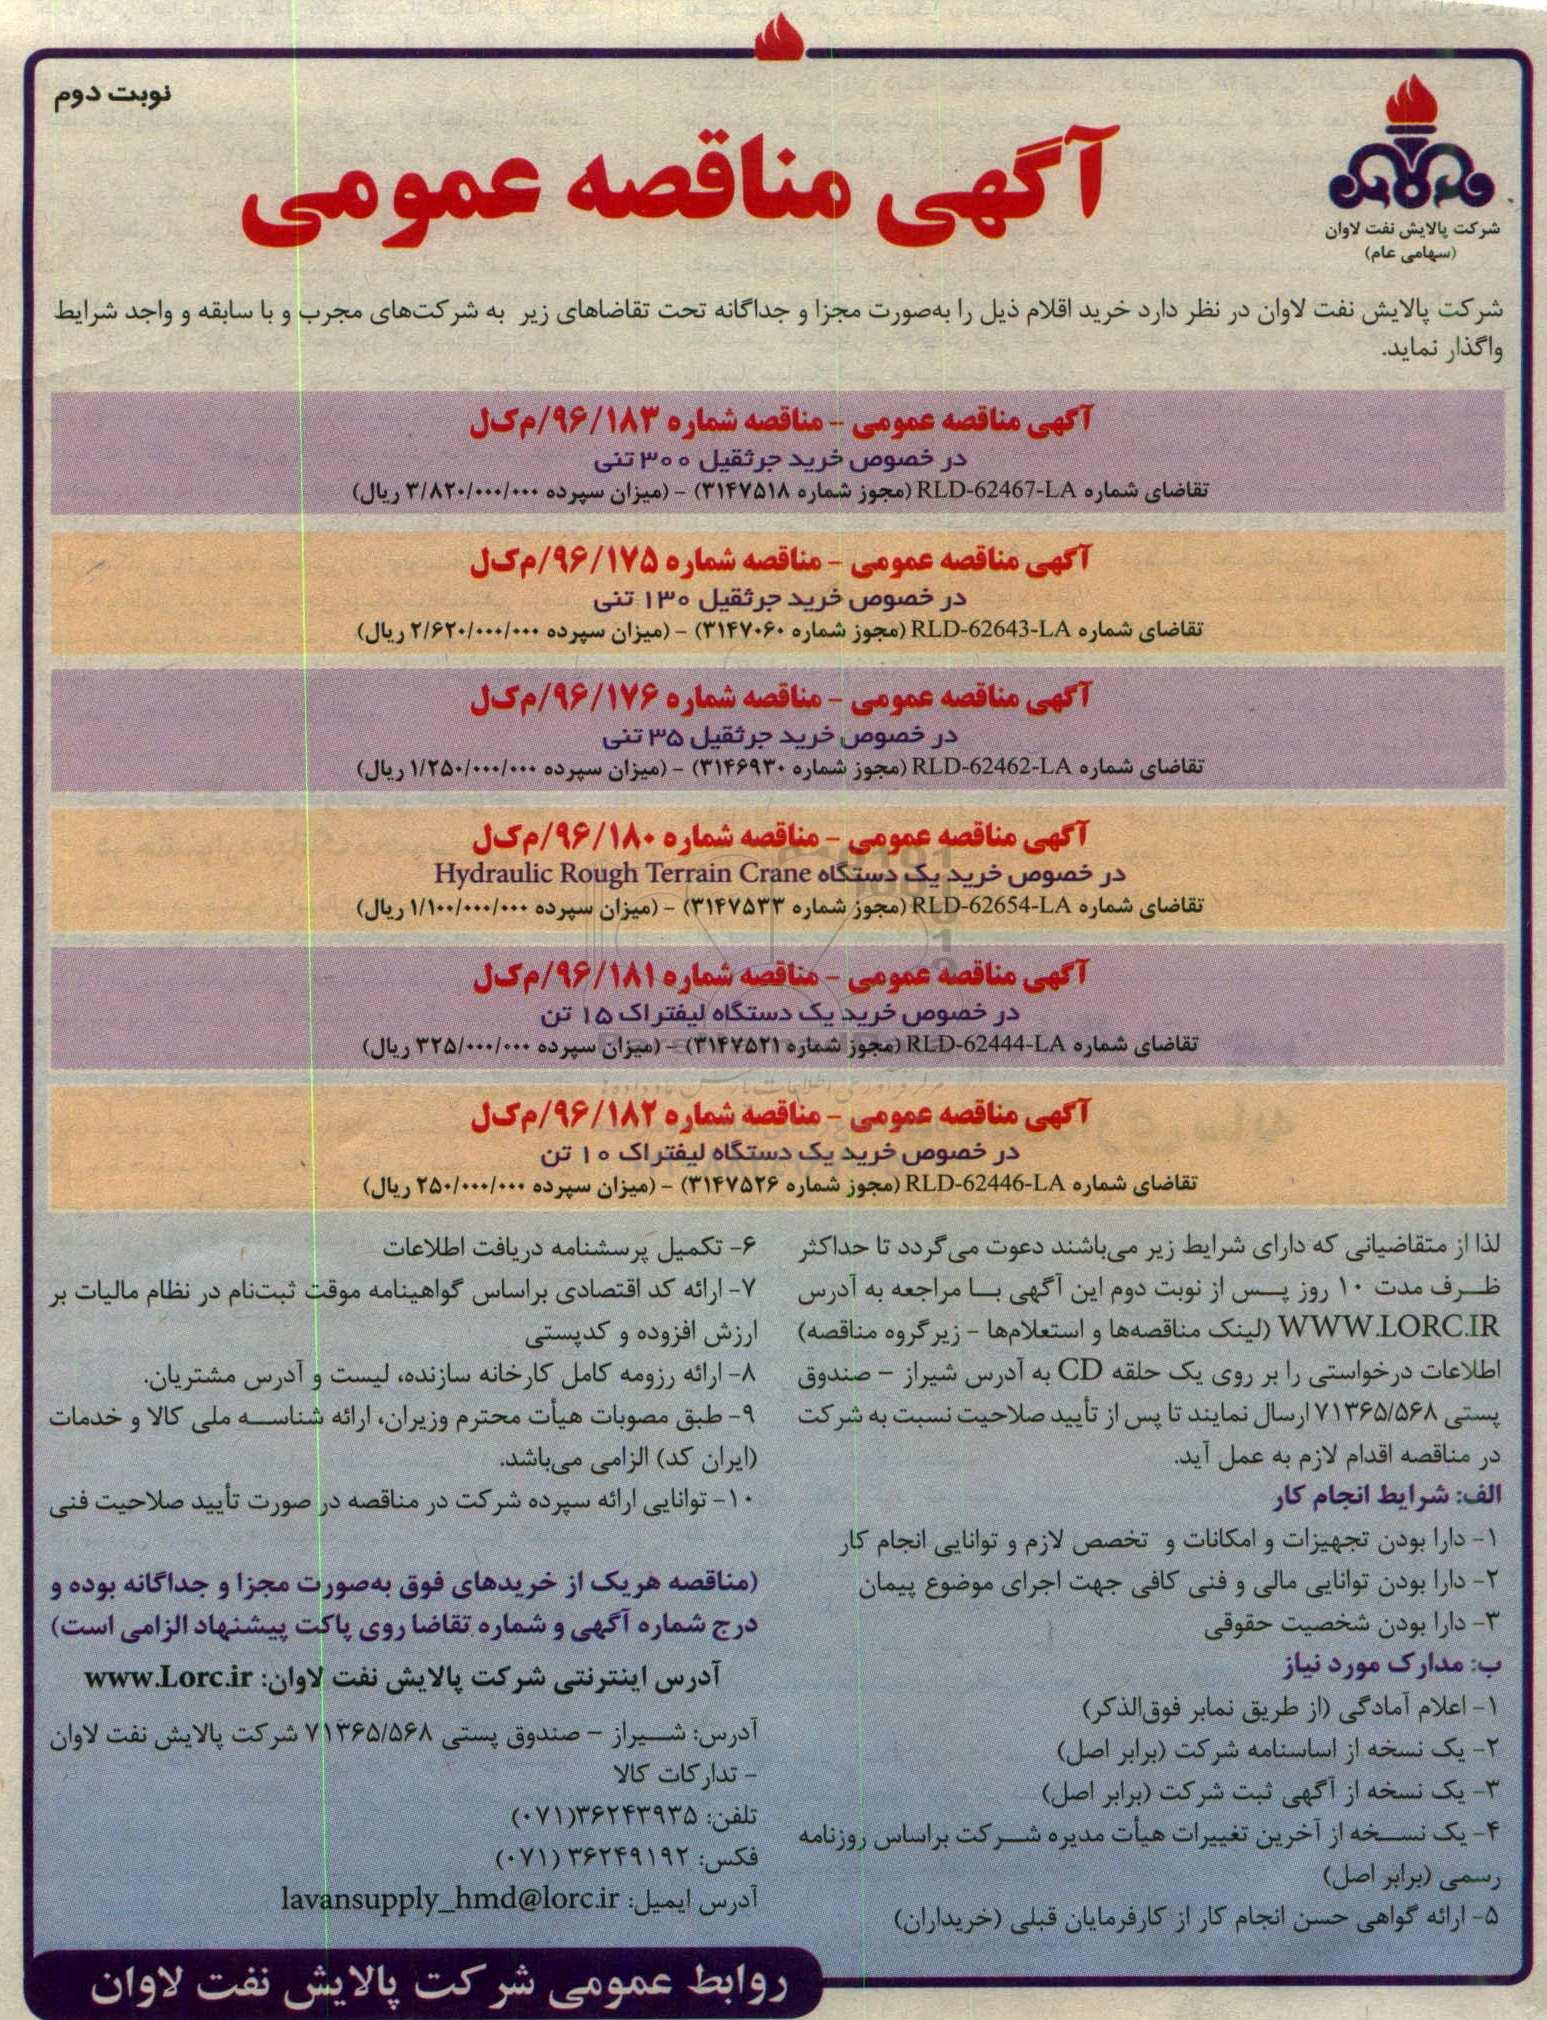 نوبت دوم
شرکت پالایش نفت لاوان
(سهامی عام)
آگهی مناقصه عمومی
شرکت پالایش نفت لاوان در نظر دارد خرید اقلام ذیل را به‌صورت مجزا و جداگانه تحت تقاضاهای زیر به شرکت‌های مجرب و با سابقه و واجد شرایط
واگذار نماید.
آگهی مناقصه عمومی - مناقصه شماره ۹۶/۱۸۳/م‌ک‌ل
در خصوص خرید جرثقیل ۳۰۰ تنی
تقاضای شماره RLD-62467-LA (مجوز شماره ۳۱۴۷۵۱۸) - (میزان سپرده ۳/۸۲۰/۰۰۰/۰۰۰ ریال)
آگهی مناقصه عمومی - مناقصه شماره ۹۶/۱۷۵/م‌ک‌ل
در خصوص خرید جرثقیل ۱۳۰ تنی
تقاضای شماره RLD-62643-LA (مجوز شماره ۳۱۴۷۰۶۰) - (میزان سپرده ۲/۶۲۰/۰۰۰/۰۰۰ ریال)
آگهی مناقصه عمومی - مناقصه شماره ۹۶/۱۷۶/م‌ک‌ل
در خصوص خرید جرثقیل ۳۵ تنی
تقاضای شماره RLD-62462-LA (مجوز شماره ۳۱۴۶۹۳۰) - (میزان سپرده ۱/۲۵۰/۰۰۰/۰۰۰ ریال)
آگهی مناقصه عمومی - مناقصه شماره ۹۶/۱۸۰/م‌ک‌ل
در خصوص خرید یک دستگاه Hydraulic Rough Terrain Crane
تقاضای شماره RLD-62654-LA (مجوز شماره ۳۱۴۷۵۳۳) - (میزان سپرده ۱/۱۰۰/۰۰۰/۰۰۰ ریال)
آگهی مناقصه عمومی - مناقصه شماره ۹۶/۱۸۱/م‌ک‌ل
در خصوص خرید یک دستگاه لیفتراک ۱۵ تن
تقاضای شماره RLD-62444-LA (مجوز شماره ۳۱۴۷۵۲۱) - (میزان سپرده ۳۲۵/۰۰۰/۰۰۰ ریال)
آگهی مناقصه عمومی - مناقصه شماره ۹۶/۱۸۲/م‌ک‌ل
در خصوص خرید یک دستگاه لیفتراک ۱۰ تن
تقاضای شماره RLD-62446-LA (مجوز شماره ۳۱۴۷۵۲۶) - (میزان سپرده ۲۵۰/۰۰۰/۰۰۰ ریال)
لذا از متقاضیانی که دارای شرایط زیر می‌باشند دعوت می‌گردد تا حداکثر
ظرف مدت ۱۰ روز پس از نوبت دوم این آگهی با مراجعه به آدرس
WWW.LORC.IR (لینک مناقصه‌ها و استعلام‌ها - زیرگروه مناقصه)
اطلاعات درخواستی را بر روی یک حلقه CD به آدرس شیراز - صندوق
پستی ۷۱۳۶۵/۵۶۸ ارسال نمایند تا پس از تأیید صلاحیت نسبت به شرکت
در مناقصه اقدام لازم به عمل آید.
الف: شرایط انجام کار
۱- دارا بودن تجهیزات و امکانات و تخصص لازم و توانایی انجام کار
۲- دارا بودن توانایی مالی و فنی کافی جهت اجرای موضوع پیمان
۳- دارا بودن شخصیت حقوقی
ب: مدارک مورد نیاز
۱- اعلام آمادگی (از طریق نمابر فوق‌الذکر)
۲- یک نسخه از اساسنامه شرکت (برابر اصل)
۳- یک نسخه از آگهی ثبت شرکت (برابر اصل)
۴- یک نسخه از آخرین تغییرات هیأت مدیره شرکت براساس روزنامه
رسمی (برابر اصل)
۵- ارائه گواهی حسن انجام کار از کارفرمایان قبلی (خریداران)
۶- تکمیل پرسشنامه دریافت اطلاعات
۷- ارائه کد اقتصادی براساس گواهینامه موقت ثبت‌نام در نظام مالیات بر
ارزش افزوده و کدپستی
۸- ارائه رزومه کامل کارخانه سازنده، لیست و آدرس مشتریان.
۹- طبق مصوبات هیأت محترم وزیران، ارائه شناسه ملی کالا و خدمات
(ایران کد) الزامی می‌باشد.
۱۰- توانایی ارائه سپرده شرکت در مناقصه در صورت تأیید صلاحیت فنی
(مناقصه هریک از خریدهای فوق به‌صورت مجزا و جداگانه بوده و
درج شماره آگهی و شماره تقاضا روی پاکت پیشنهاد الزامی است)
آدرس اینترنتی شرکت پالایش نفت لاوان: www.Lorc.ir
آدرس: شیراز - صندوق پستی ۷۱۳۶۵/۵۶۸ شرکت پالایش نفت لاوان
- تدارکات کالا
تلفن: ۳۶۲۴۳۹۳۵(۰۷۱)
فکس: ۳۶۲۴۹۱۹۲ (۰۷۱)
آدرس ایمیل: lavansupply_hmd@lorc.ir
روابط عمومی شرکت پالایش نفت لاوان